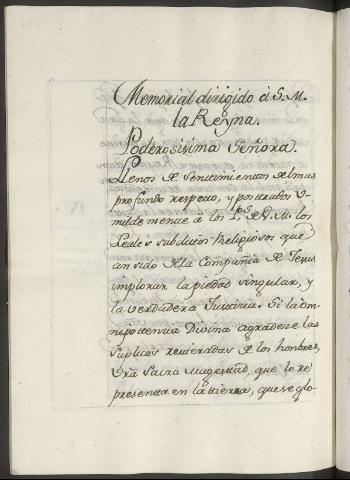 Memorial dirigido á S. M.
la Reyna.
Poderosisima Señora.
Llenos de Sentimientos del mas
profundo respeto, y postrados u-
mildemente a los P.s de V. M. los
Leales subditos Religiosos que
an sido dela Compañia de Jesus
imploran la piedad singular, y
la verdadera Justicia. Si la om-
nipotencia Divina agradece las
suplicas reiteradas de los hombres,
Vrã Sacra Magestad, que le re
presenta en la tierra, que se glo-